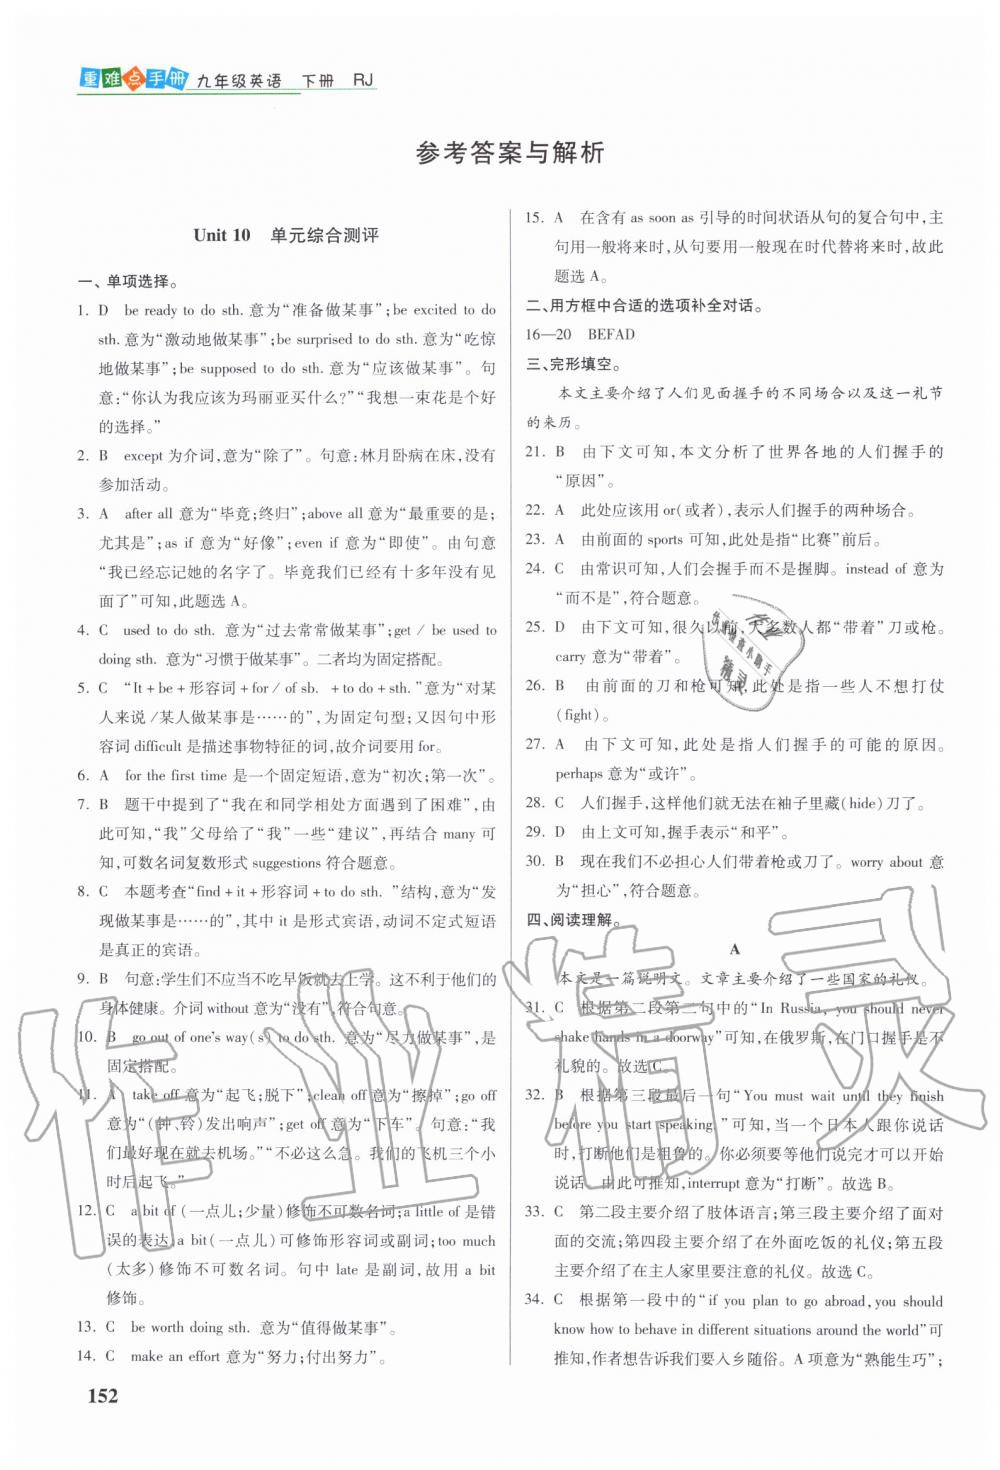 重难点手册 九年级英语 下册 RJ
参考答案与解析
Unit 10 单元综合测评
一、单项选择。
1. D be ready to do sth. 意为“准备做某事”;be excited to do
sth. 意为“激动地做某事”;be surprised to do sth. 意为“吃惊
地做某事”;be supposed to do sth. 意为“应该做某事”。句
意:“你认为我应该为玛丽亚买什么?”“我想一束花是个好
的选择。”
2. B except 为介词,意为“除了”。句意:林月卧病在床,没有
参加活动。
3. A after all 意为“毕竟;终归”;above all 意为“最重要的是;
尤其是”;as if 意为“好像”;even if 意为“即使”。由句意
“我已经忘记她的名字了。毕竟我们已经有十多年没有见
面了”可知,此题选A。
4. C used to do sth. 意为“过去常常做某事”;get / be used to
doing sth. 意为“习惯于做某事”。二者均为固定搭配。
5. C “It + be + 形容词 + for / of sb. + to do + sth.”意为“对某
人来说/某人做某事是……的”,为固定句型;又因句中形
容词 difficult 是描述事物特征的词,故介词要用 for。
6. A for the first time 是一个固定短语,意为“初次;第一次”。
7. B 题干中提到了“我在和同学相处方面遇到了困难”,由
此可知,“我”父母给了“我”一些“建议”,再结合 many 可
知,可数名词复数形式 suggestions 符合题意。
8. C 本题考查“find + it + 形容词 + to do sth. ”结构,意为“发
现做某事是……的”,其中 it 是形式宾语,动词不定式短语
是真正的宾语。
9. B 句意:学生们不应当不吃早饭就去上学。这不利于他们的
身体健康。介词 without 意为“没有”,符合句意。
10. B go out of one's way(s) to do sth. 意为“尽力做某事”,是
固定搭配。
11. A take off 意为“起飞;脱下”;clean off 意为“擦掉”;go off
意为“(钟、铃)发出响声”;get off 意为“下车”。句意:我
们必须现在就去机场。”“不必这么着急。我们的飞机三个
小时后起飞。”
12. C a bit of (一点儿;少量)修饰不可数名词;a little of 是错
误的表达;a bit(一点儿)可修饰形容词或副词;too much
(太多)修饰不可数名词。句中 late 是副词,故用 a bit
修饰。
13. C be worth doing sth. 意为“值得做某事”。
14. C make an effort 意为“努力;付出努力”。
152
15. A 在含有 as soon as 引导的时间状语从句的复合句中,主
句用一般将来时,从句要用一般现在时代替将来时,故此
题选A。
二、用方框中合适的选项补全对话。
16—20 BEFAD
三、完形填空。
本文主要介绍了人们见面握手的不同场合以及这一礼节
的来历。
21. B 由下文可知,本文分析了世界各地的人们握手的
“原因”。
22. A 此处应该用 or(或者),表示人们握手的两种场合。
23. A 由前面的 sports 可知,此处是指“比赛”前后。
24. C 由常识可知,人们会握手而不是握脚。instead of 意为
“而不是”,符合题意。
25. D 由下文可知,很久以前,大多数人都“带着”刀或枪。
carry 意为“带着”。
26. B 由前面的刀和枪可知,此处是指一些人不想打仗
(fight)。
27. A 由下文可知,此处是指人们握手的可能的原因。
perhaps 意为“或许”。
28. C 人们握手,这样他们就无法在袖子里藏(hide)刀了。
29. D 由上文可知,握手表示“和平”。
30. B 现在我们不必担心人们带着枪或刀了。worry about 意
为“担心”,符合题意。
四、阅读理解。
A
本文是一篇说明文。文章主要介绍了一些国家的礼仪。
31. C 根据第二段第二句中的“In Russia, you should never
shake hands in a doorway”可知,在俄罗斯,在门口握手是不
礼貌的。故选C。
32. B 根据第三段最后一句“You must wait until they finish
before you start speaking.”可知,当一个日本人跟你说话
时,打断他们是粗鲁的。你必须要等他们说完才可以开始
说话。由此可推知,interrupt 意为“打断”。故选B。
33. C 第二段主要介绍了肢体语言;第三段主要介绍了面对
面的交流;第四段主要介绍了在外面吃饭的礼仪;第五段
主要介绍了在主人家里要注意的礼仪。故选C。
34. C 根据第一段中的“if you plan to go abroad, you should
know how to behave in different situations around the world”可
推知,作者想告诉我们要入乡随俗。A 项意为“熟能生巧”;
作业精灵